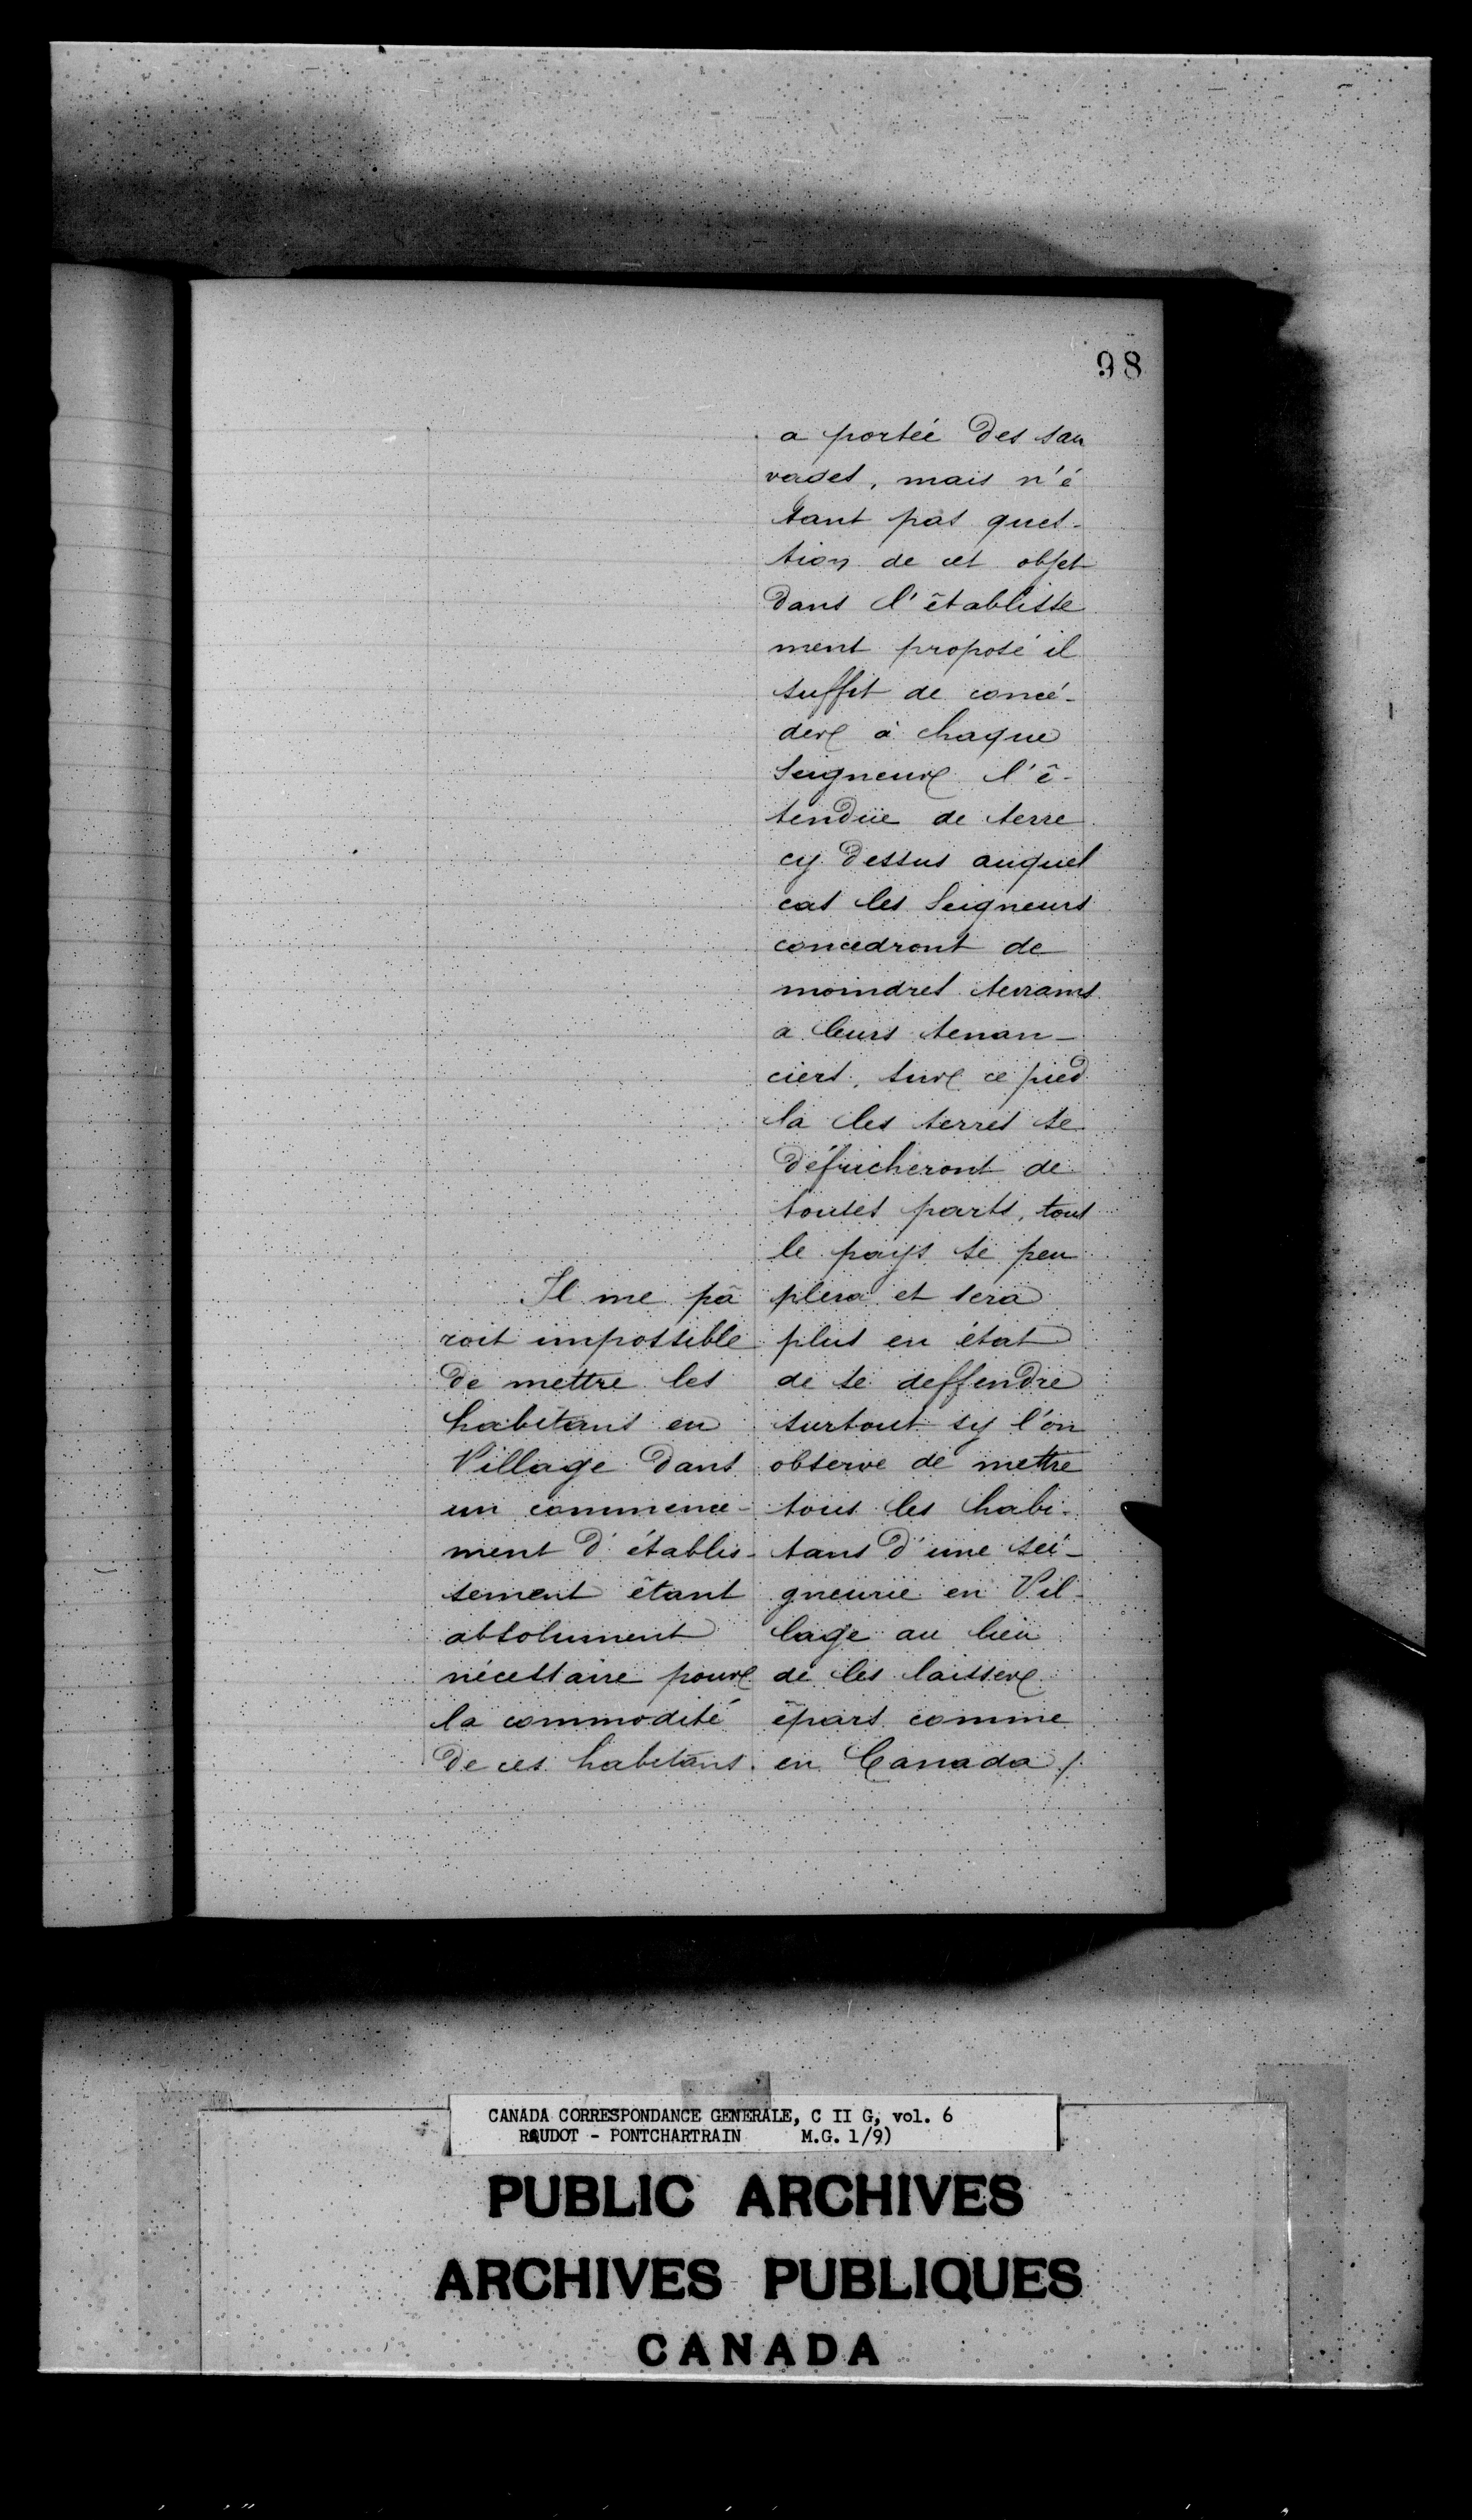 98
a portée des sau
vages, mais n'é
tant pas ques-
tion de cet objet
dans l'établisse
ment proposé il
suffit de concé-
der à chaque
Seigneur l'ê-
tendüe de terre
cy dessus auquel
cas les Seigneurs
concedront de
moindres terrains
a leurs tenan-
ciers, sur ce pied
la les terres se
défricheront de
toutes parts, tout
le pays se peu
plera et sera
plus en état
de se deffendre
surtout sy l'on
observe de mettre
tous les habi-
tans d'une sei-
gneurie en Vil-
lage au lieu
de les laisser
épars comme
en Canada /.
Il me pa
roit impossible
de mettre les
habitans en
Village dans
un commence-
ment d'établis-
sement étant
absolument
nécessaire pour
la commodité
de ces habitans.
CANADA CORRESPONDANCE GENERALE, C II G, vol. 6
RAUDOT - PONTCHARTRAIN M.G. 1/9)
PUBLIC ARCHIVES
ARCHIVES PUBLIQUES
CANADA